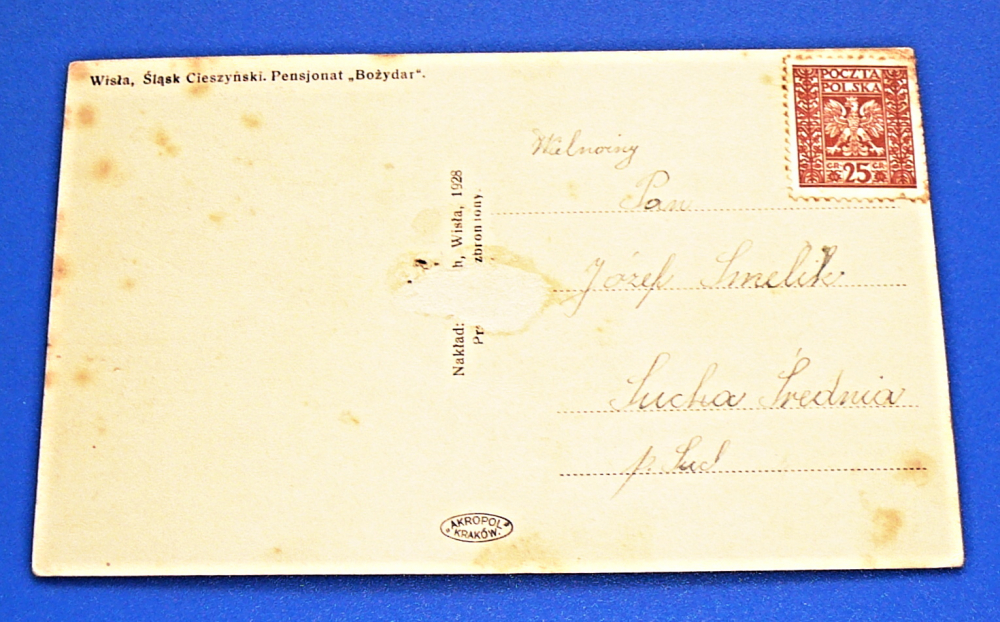 Wisła, Śląsk Cieszyński. Pensjonat „Bożydar".
POCZTA
POLSKA
GR. 25 GR.
Wielmożny
Pan
Józef Smelik
Sucha Średnia
p. Such
Nakład: h, Wisła, 1928
zbroniony.
"AKROPOL"
KRAKÓW.